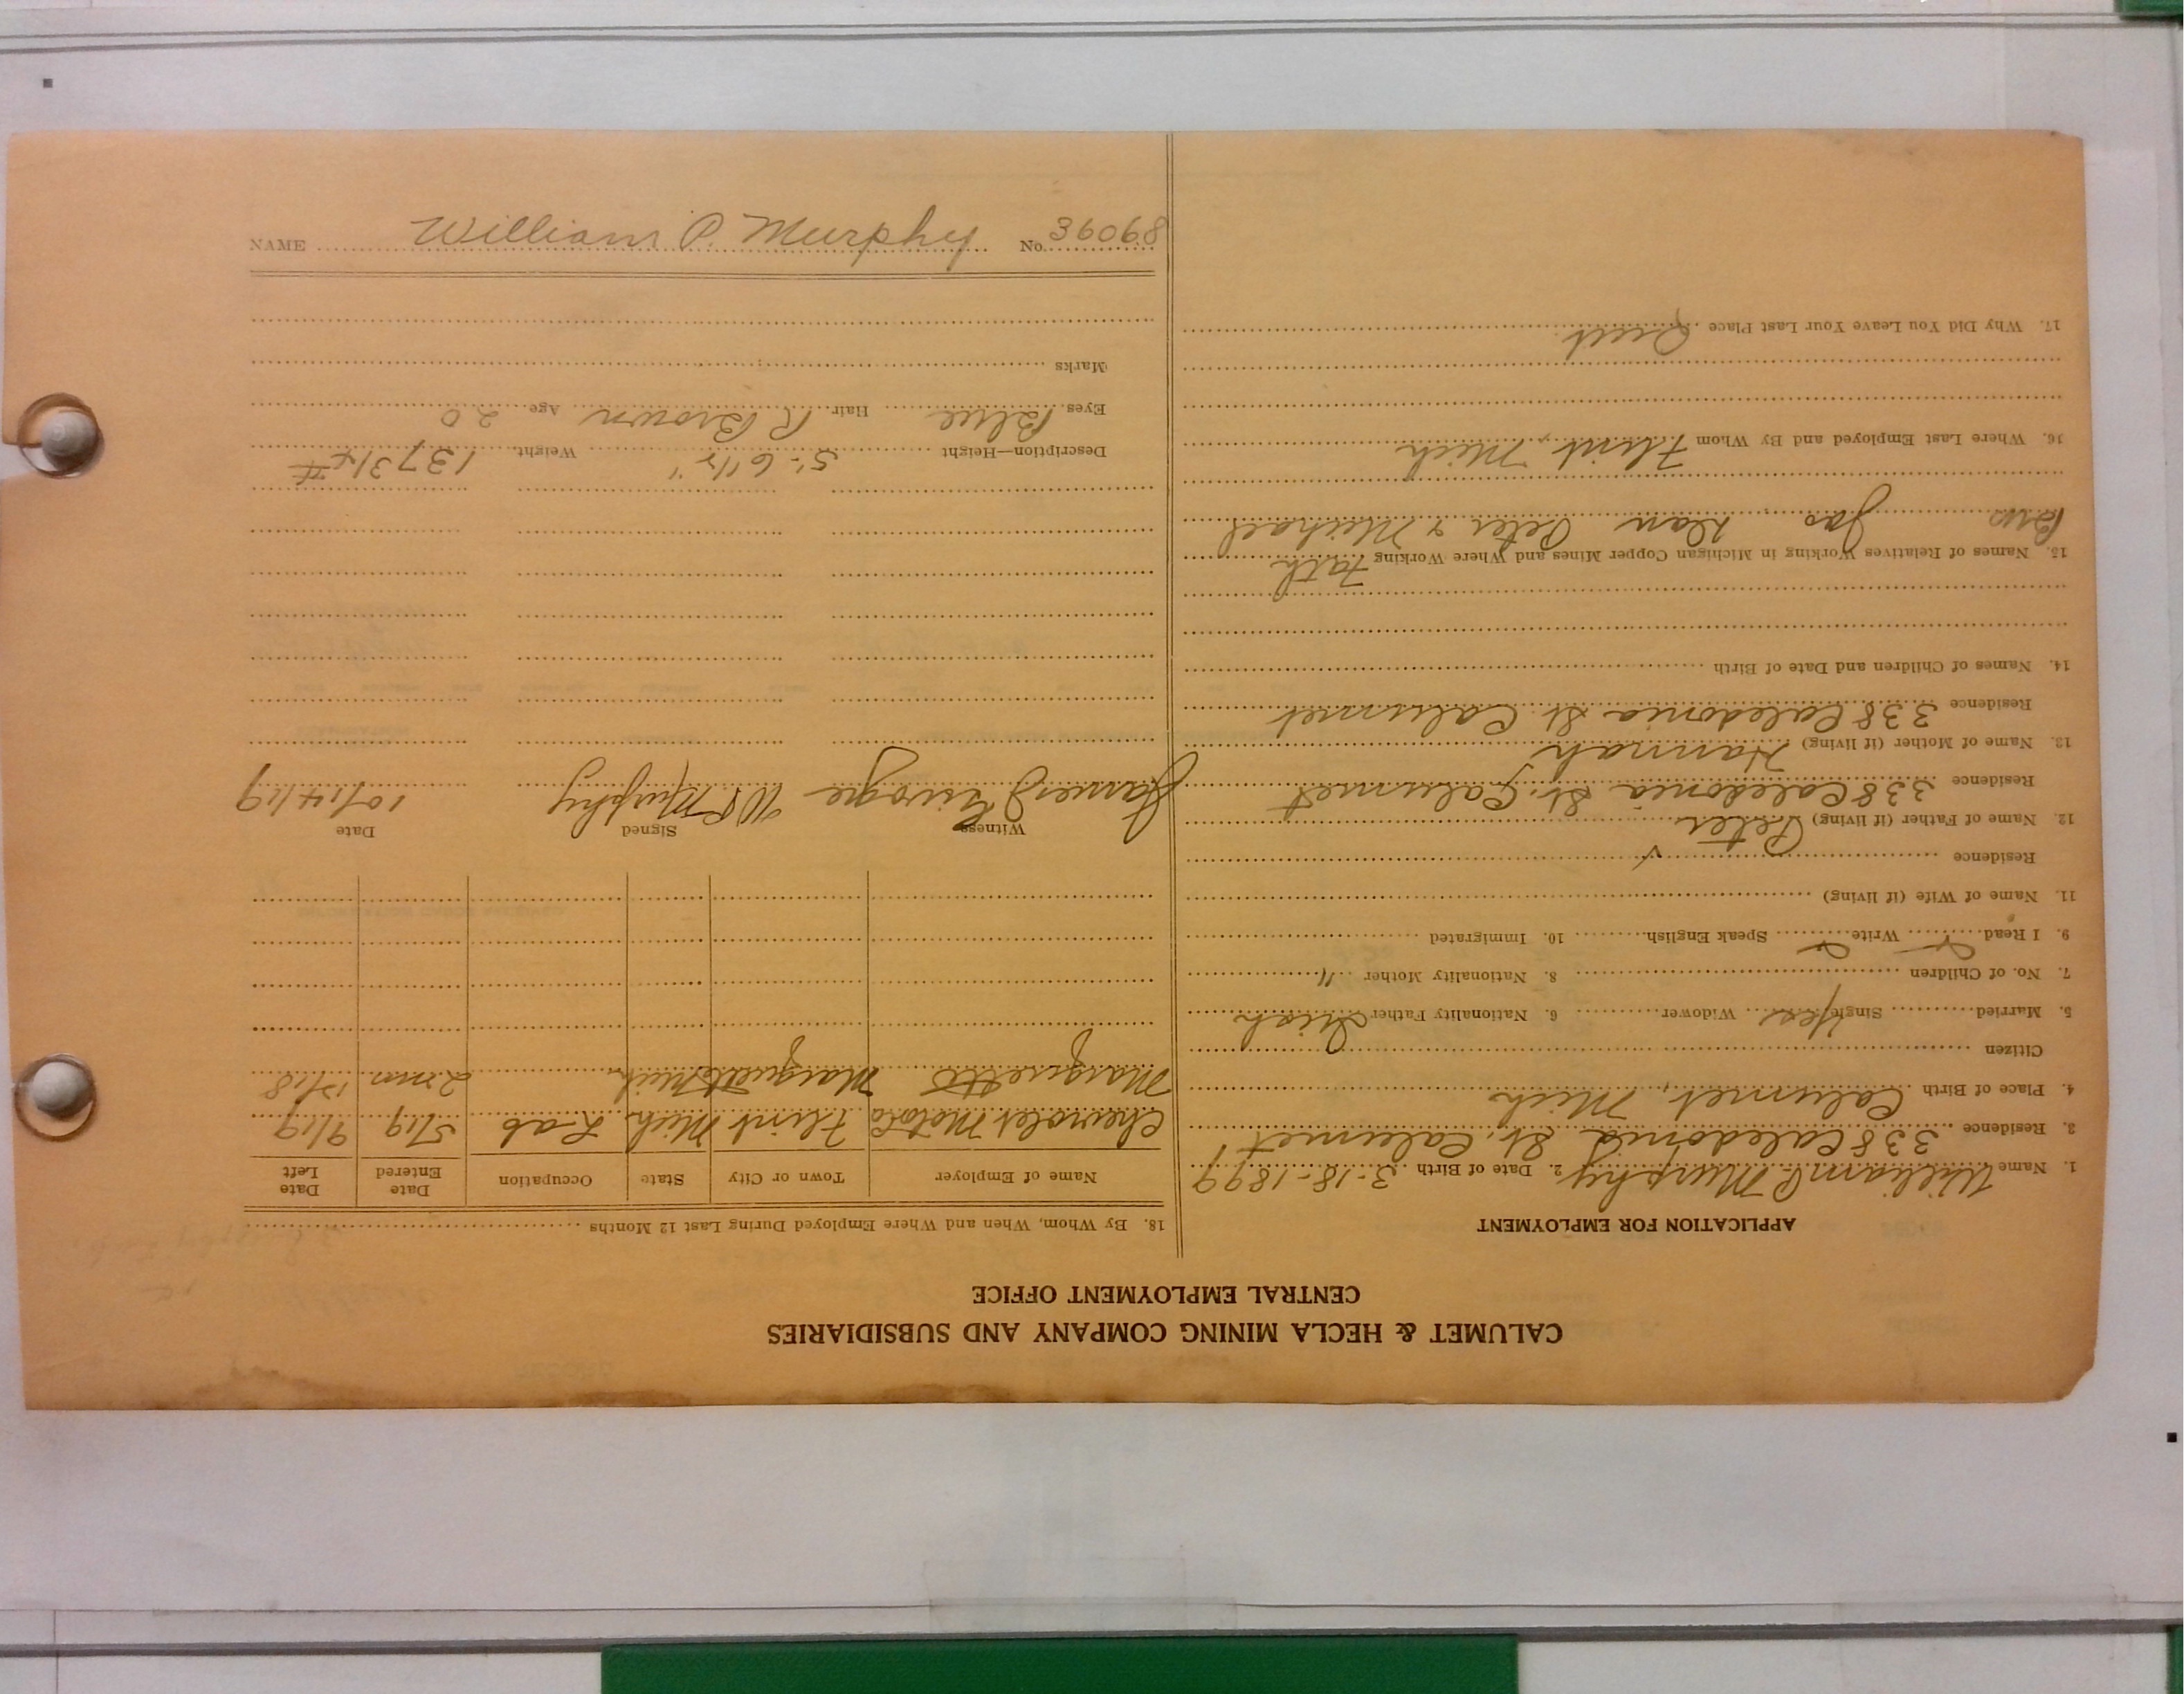 CALUMET & HECLA MINING COMPANY AND SUBSIDIARIES
CENTRAL EMPLOYMENT OFFICE
APPLICATION FOR EMPLOYMENT
1. Name William P. Murphy 2. Date of Birth 3-18-1899
3. Residence 338 Caledonia St. Calumet
4. Place of Birth Calumet, Mich
Citizen
5. Married Single Yes Widower 6. Nationality Father Irish
7. No. of Children 8. Nationality Mother "
9. I Read Write Speak English 10. Immigrated
11. Name of Wife (if living)
Residence
12. Name of Father (if living) Peter
Residence 338 Caledonia St. Calumet
13. Name of Mother (if living) Hannah
Residence 338 Caledonia St. Calumet
14. Names of Children and Date of Birth
15. Names of Relatives Working in Michigan Copper Mines and Where Working Fath
Bro Jas Dan Peter & Michael
16. Where Last Employed and By Whom Flint, Mich
17. Why Did You Leave Your Last Place Quit
18. By Whom, When and Where Employed During Last 12 Months
Name of Employer Town or City State Occupation Date Entered Date Left
Chevrolet Motor Co Flint Mich. Lab 5/19 9/19
Marquette Marquette Mich. 2 mn 12/18
Witness Signed Date
James W P Murphy 10/14/19
Description—Height 5'-6 1/2" Weight 137 3/4 #
Eyes Blue Hair R Brown Age 20
Marks
NAME William P. Murphy No. 36068